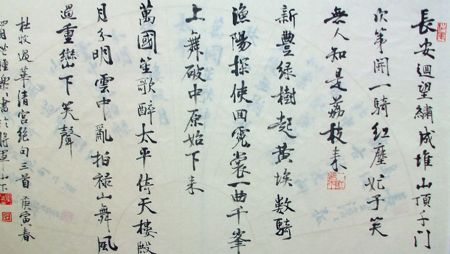 長安迴望繡成堆山頂千門
次第開一騎紅塵妃子笑
無人知是荔枝来
新豐綠樹起黃埃數騎
漁陽探使回霓裳一曲千峯
上舞破中原始下来
萬國笙歌醉太平倚天樓殿
月分明雲中亂拍祿山舞風
過重巒下笑聲
杜牧過華清宮絕句三首庚寅春
書於將軍山下